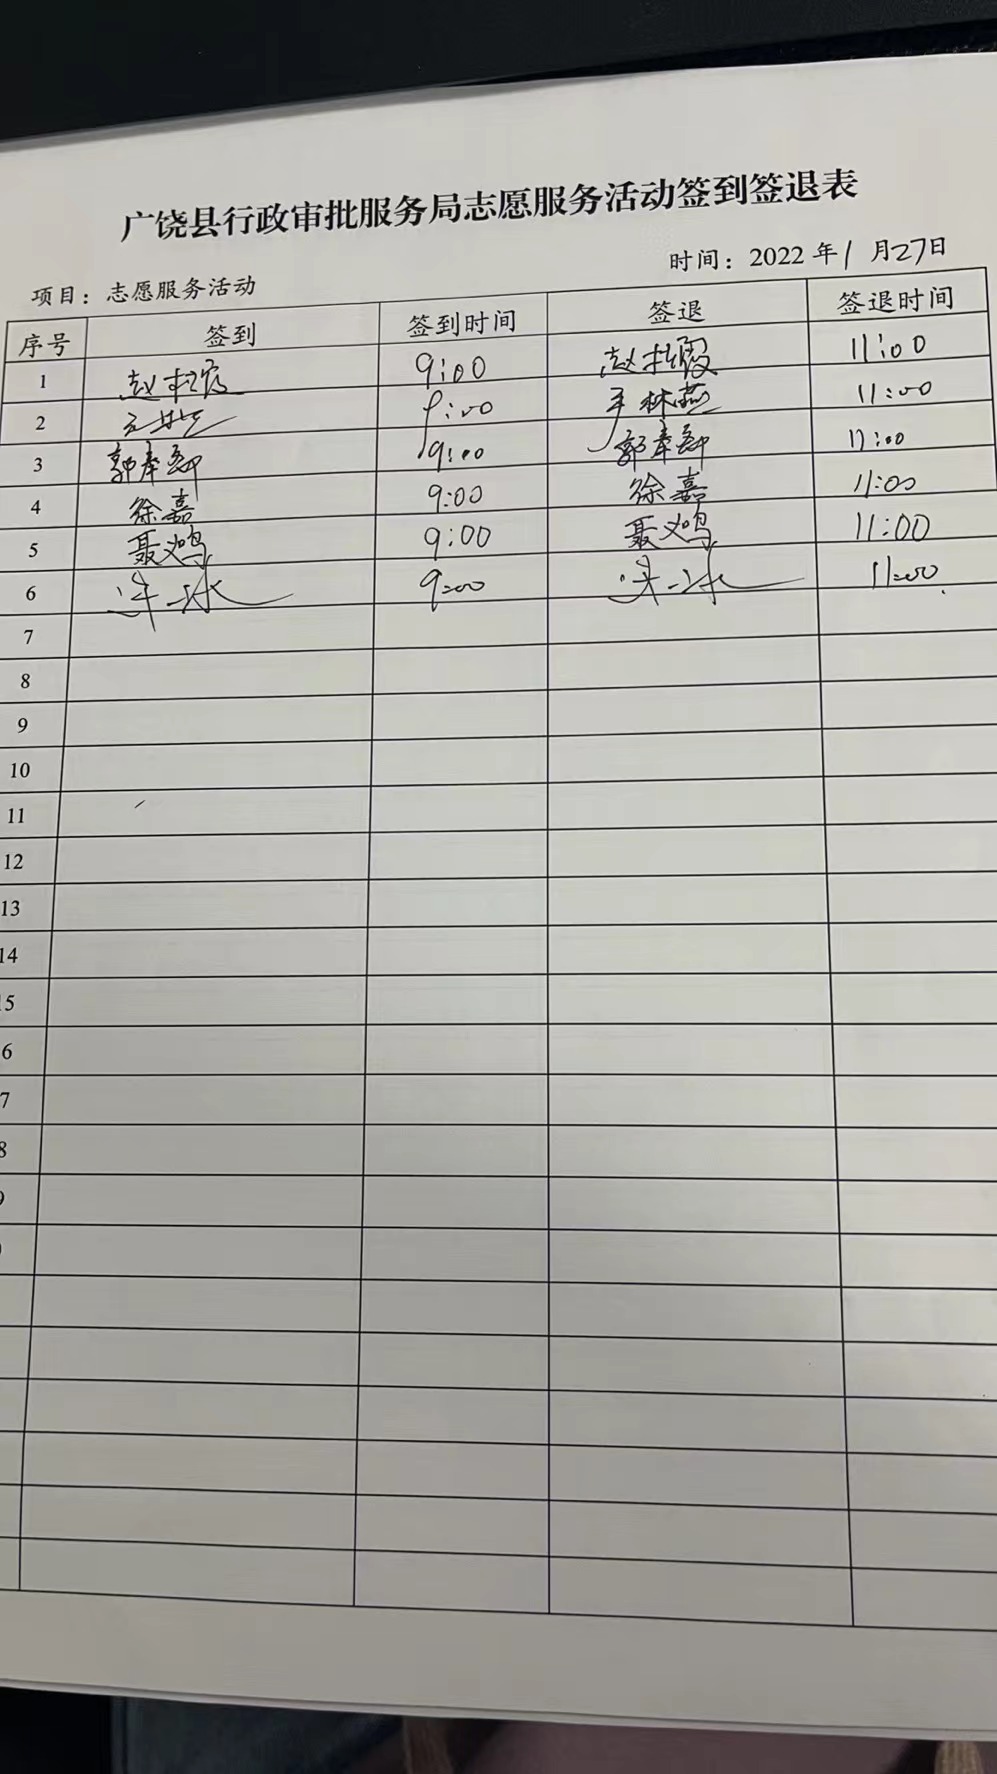 广饶县行政审批服务局志愿服务活动签到签退表
项目：志愿服务活动 时间：2022年1月27日
序号 签到 签到时间 签退 签退时间
1 赵 9:00 赵 11:00
2 9:00 11:00
3 郭奉 9:00 郭奉 11:00
4 徐嘉 9:00 徐嘉 11:00
5 聂义鸣 9:00 聂义鸣 11:00
6 9:00 11:00
7
8
9
10
11
12
13
14
5
6
7
8
9